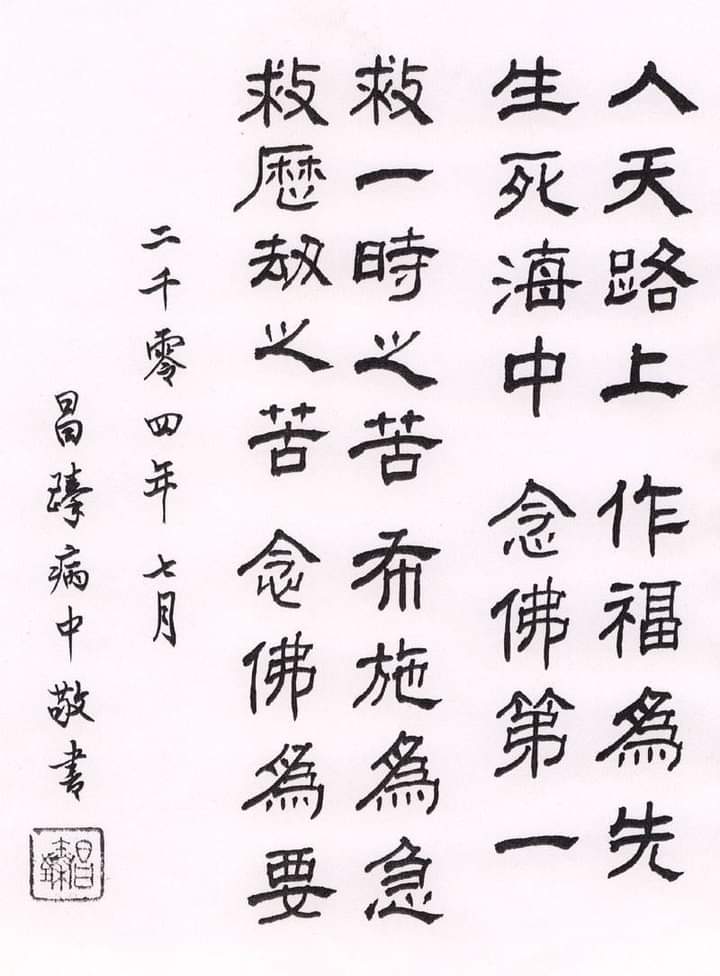 人天路上 作福為先
生死海中 念佛第一
救一時之苦 布施為急
救歷劫之苦 念佛為要
二千零四年七月
昌臻病中敬書
昌臻